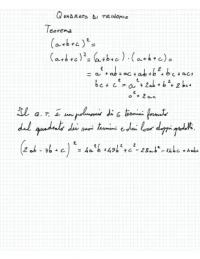 QUADRATO DI TRINOMIO
Teorema
(a+b+c)² =
(a+b+c)² = (a+b+c)·(a+b+c) =
= a²+ab+ac+ab+b²+bc+ac+
bc+c² = a²+2ab+b²+2bc+
c²+2ac
Il Q.T. è un polinomio di 6 termini formato
dal quadrato dei suoi termini e dai loro doppi prodotti.